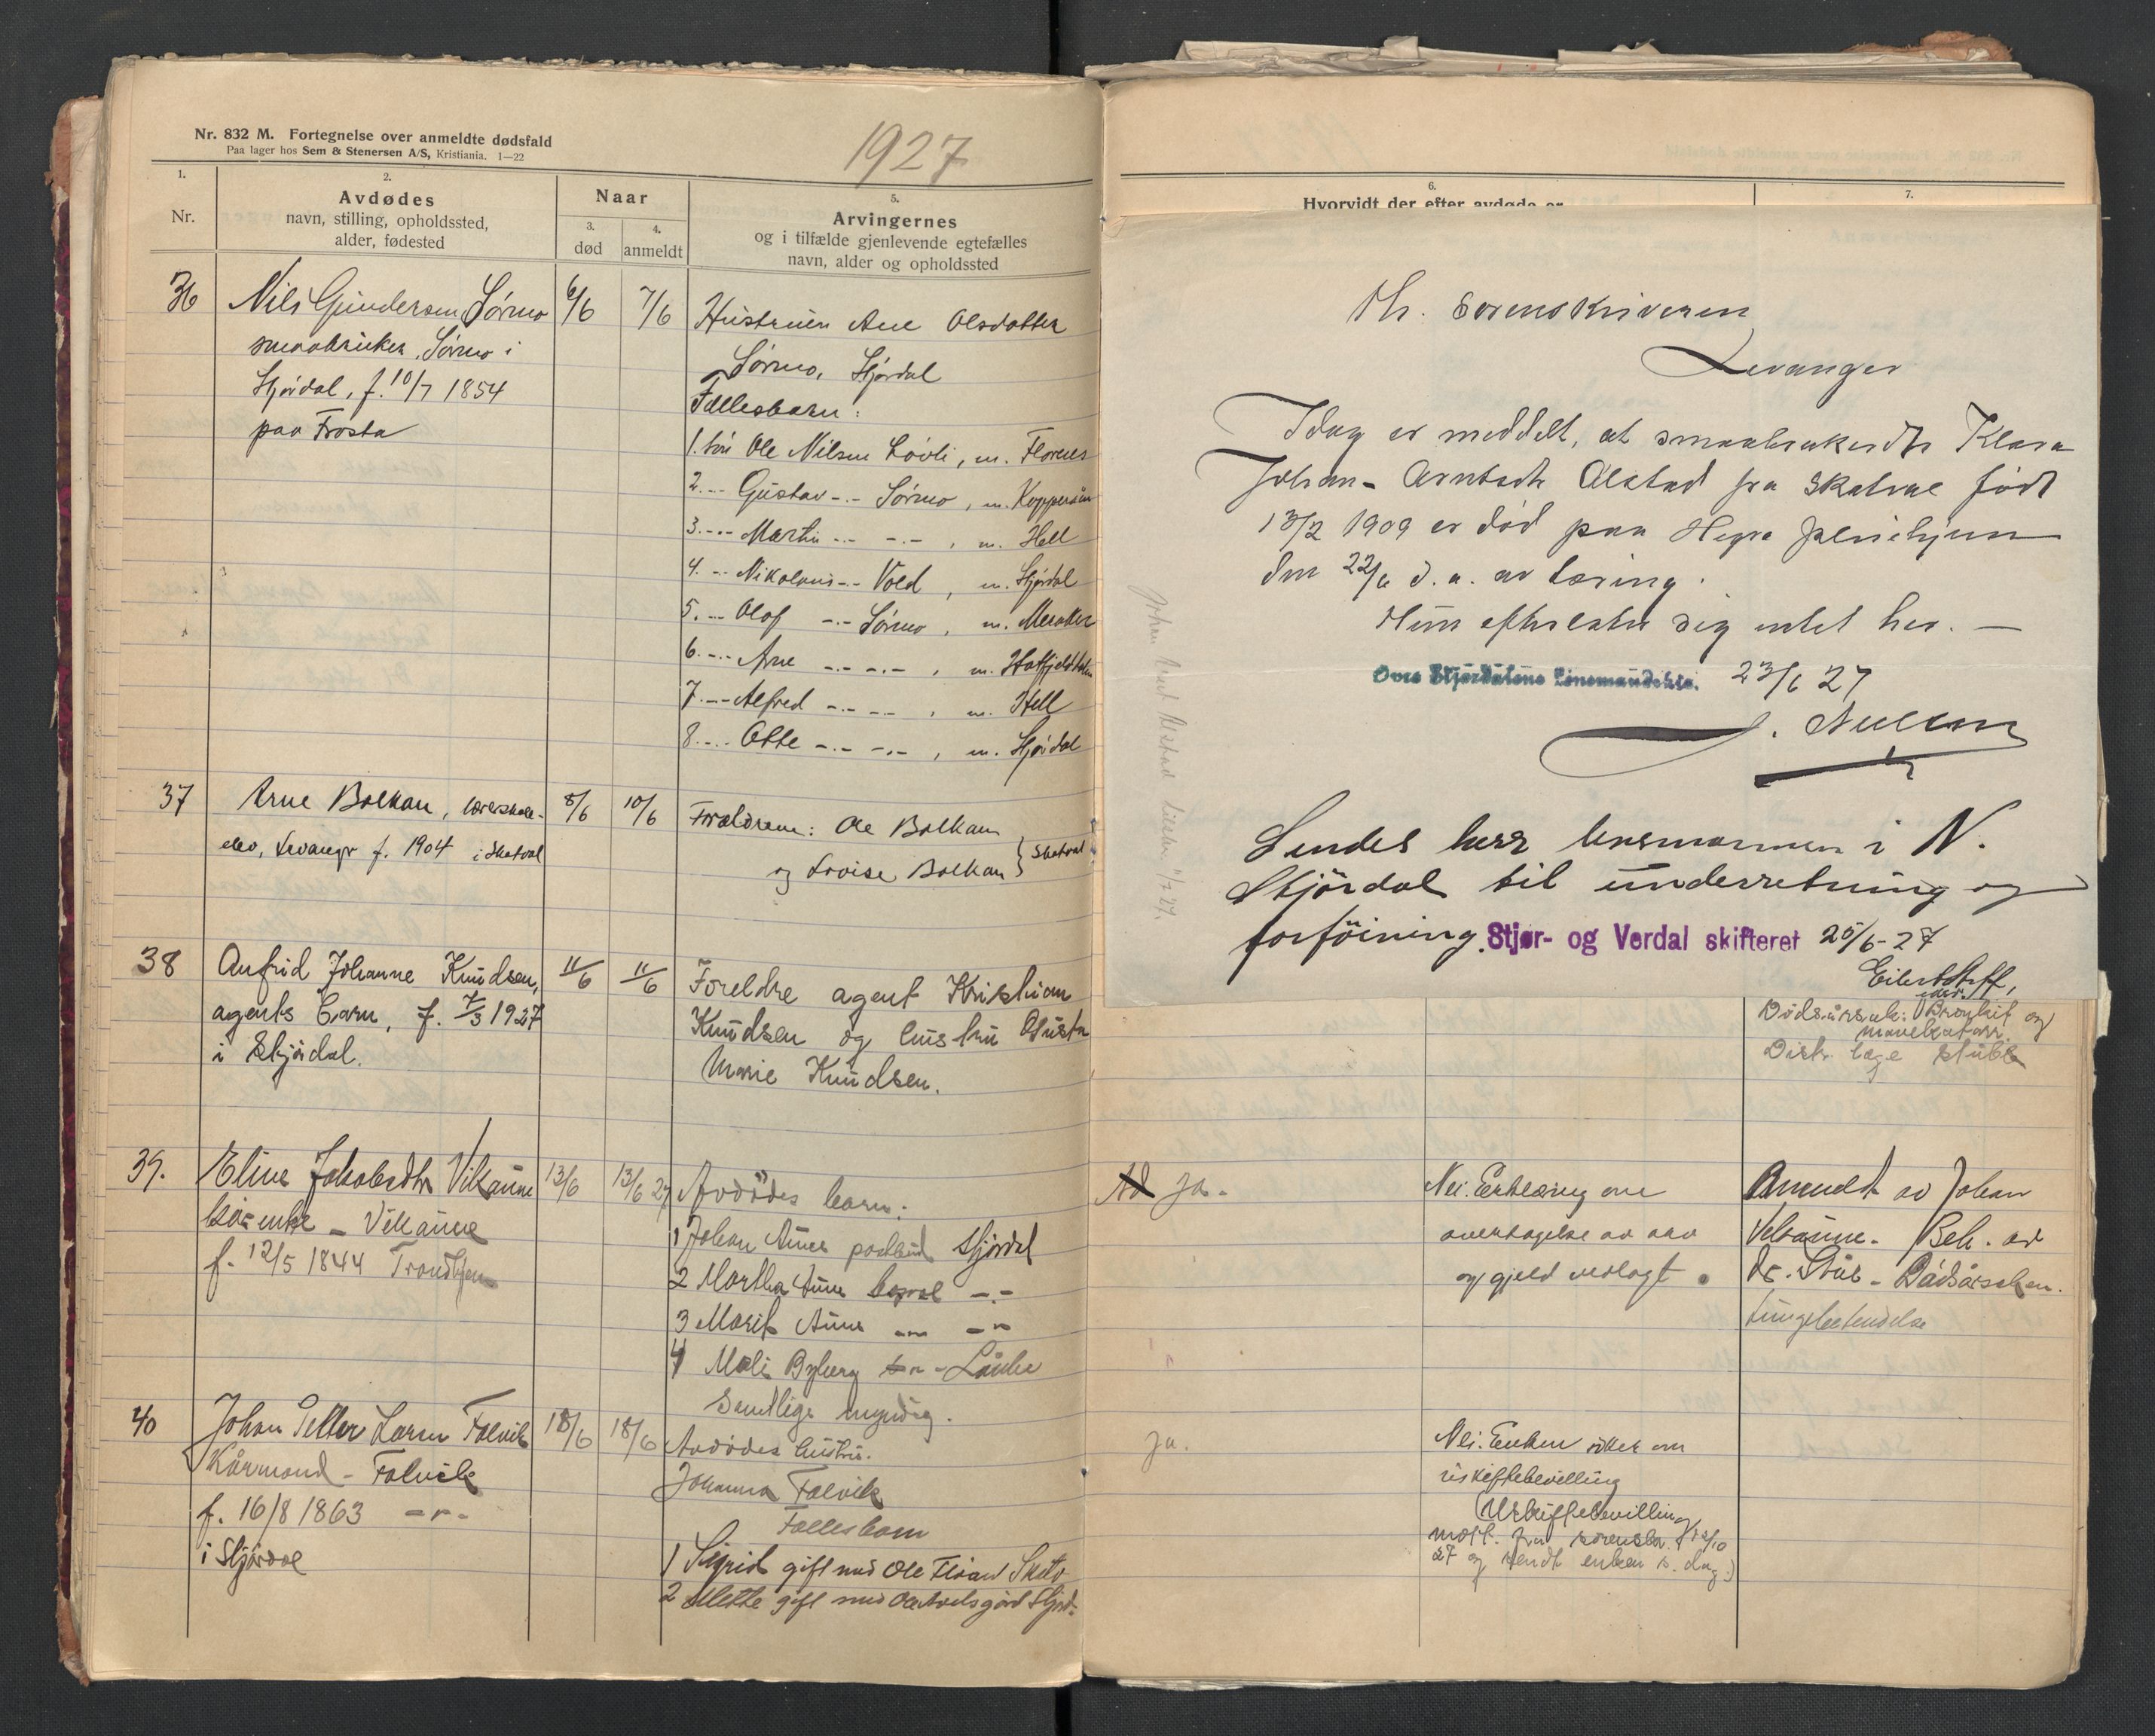 Nr. 832 M. Fortegnelse over anmeldte dødsfald
Paa lager hos Sem & Stenersen A/S, Kristiania. 1—22
1927
1.
Nr.
2.
Avdødes
navn, stilling, opholdssted,
alder, fødested
Naar
3.
død
4.
anmeldt
5.
Arvingernes
og i tilfælde gjenlevende egtefælles
navn, alder og opholdssted
36
Nils Gundersen Sørmo
smaabruker, Sørmo i
Stjørdal, f. 10/7 1854
paa Frosta
6/6
7/6
Hustruen Ane Olsdatter
Sørmo, Stjørdal
Fællesbarn:
1. Søn Ole Nilsen Løvli, m. Flornes
2. -- Gustav -.- Sørmo, m. Kopperaaen
3. -.- Martin -.- -.-, m. Hell
4. -.- Nikolaus -.- Vold, m. Stjørdal
5. -- Olaf -.- Sørmo, m. Meraker
6. -.- Arne -.- -.-, m. Hatfjelddalen
7. -.- Alfred -.- -.-, m. Hell
8. -.- Otte -.- -.-, m. Stjørdal
37
Arne Bolkan, lærerskole-
elev, Levanger f. 1904 i Skatval
8/6
10/6
Forældrene: Ole Bolkan
og Lovise Bolkan } Skatval
38
Anfrid Johanne Knudsen,
agents barn, f. 7/3 1927
i Stjørdal.
11/6
11/6
Foreldre agent Kristian
Knudsen og hustru Gusta
Marie Knudsen.
39.
Eline Jakobsdtr Vikaune
kårenke - Vikaune
f. 12/5 1844 Trondhjem
13/6
13/6 27
Avdødes barn:
1 Johan Aune postbud Stjørdal
2 Martha Aune -.-
3 Marit Aune -.- -.-
4 Mali Byberg -.- Lånke
Samtlige myndig.
40
Johan Petter Larsen Falvik
Kårmand - Falvik
f. 16/8 1863 -.-
i Stjørdal
18/6
18/6
Avdødes hustru.
Johanna Falvik
Fællesbarn
1 Sigrid gift med Ole Floan Skatv
2 Mette gift med Ole Avelsgård Stjørd.
6.
Hvorvidt der efter avdøde er
7.
Hr. Sorenskriveren
Levanger
Idag er meddelt, at smaabrukerdtr Klara
Johan- Arntsdtr Alstad fra Skatval født
13/2 1909 er død paa Hegra pleiehjem
den 22/6 d. a. av tæring.
Hun efterlater sig intet her. —
Øvre Stjørdalens Lensmandskto. 23/6 27
J. Nielsen
Sendes herr lensmannen i N.
Stjørdal til underretning og
forføining. Stjør- og Verdal skifteret 25/6-27
Eilert
Johan Arnt Alstad
Dødsårsak: Bronkit og
mavekatarr.
Distr. læge Stubb
Ad Ja.
Nei. Erklæring om
overtagelse av arv
og gjeld vedlagt.
Anmeldt av Johan
Vikaune. Beh. av
dr. Stub - Dødsårsaken.
Lungebetendelse
Ja.
Nei. Enken søker om
uskiftebevilling
(Uskiftebevilling
mott. fra sorenskr. 12/10
27 og sendt enken s. dag.)